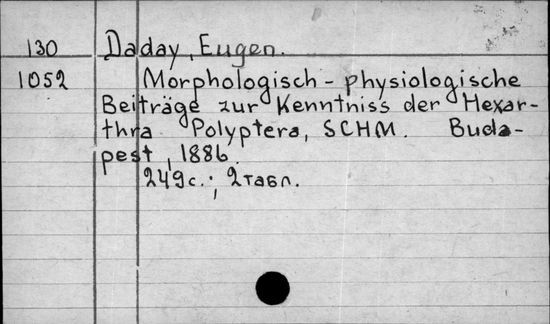 130 Daday, Eugen.
1052 Morphologisch-physiologische
Beiträge zur Kenntniss der Hexar-
thra Polyptera, SCHM. Buda-
pest, 1886.
249с.; 2табл.